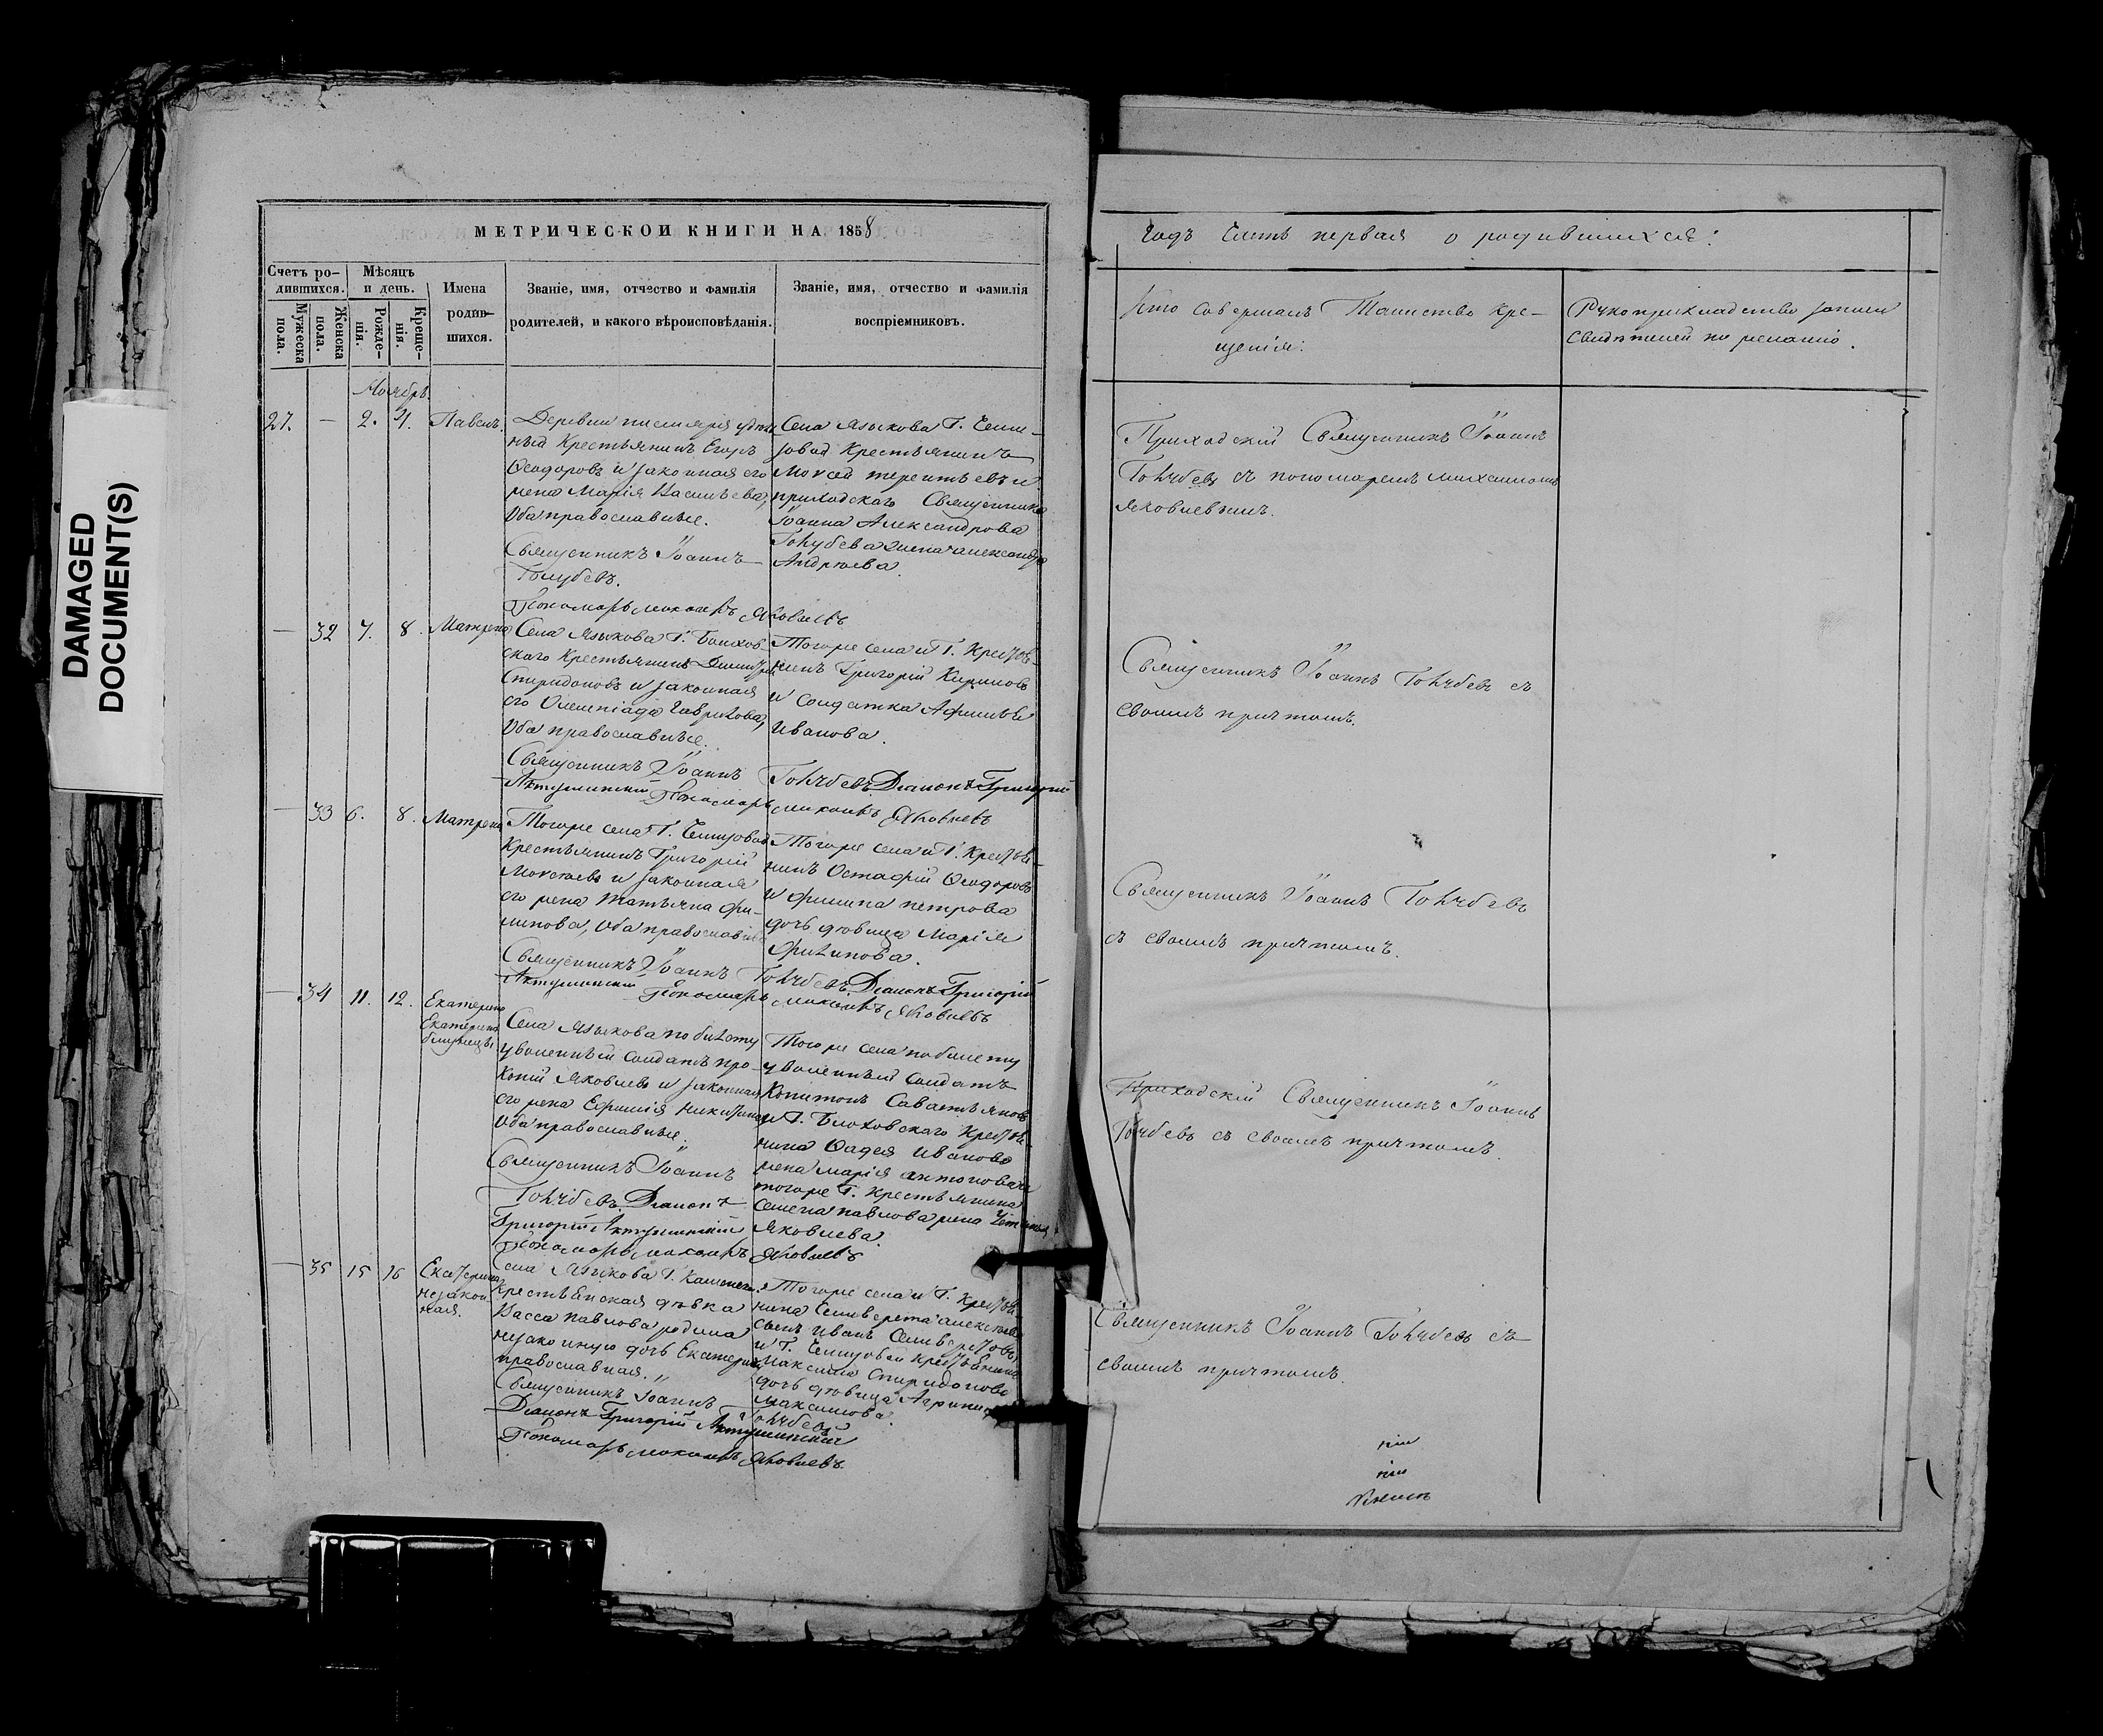 DAMAGED
DOCUMENT(S)
МЕТРИЧЕСКОЙ КНИГИ НА 1858
Счетъ ро-
дившихся.
Мѣсяцъ
и день.
Мужеска
пола.
Женска
пола.
Рожде-
нія.
Креще-
нія.
Имена
родив-
шихся.
Званіе, имя, отчество и фамилія
родителей, и какого вѣроисповѣданія.
Званіе, имя, отчество и фамилія
воспріемниковъ.
Ноябрь.
27. — 2. 4. Павелъ.
Деревни
ный Крестьянинъ Егоръ
Ѳеодоровъ и законная его
жена Марія Васильева,
Оба православные.
Священникъ Іоаннъ
Голубевъ.
Пономарь Яковлевъ
Села Языкова Г.
Крестьянинъ
Моисей Терентьевъ и
приходскаго Священника
Іоанна Александрова
Голубева жена Александра
Андреева.
— 32 7. 8. Матрена
Села Языкова Г.
скаго Крестьянинъ Димитрій
Спиридоновъ и законная
его Олимпіада Гаврилова,
Оба православные.
Священникъ Іоаннъ Голубевъ Діаконъ Григорій
Пономарь Яковлевъ
Тогоже села и Г. Крестья-
нинъ Григорій Кириловъ
и солдатка Афимья
Иванова.
— 33 6. 8. Матрена
Тогоже села Г.
Крестьянинъ Григорій
Моисеевъ и законная
его жена Татьяна Фи-
липова, Оба православные
Священникъ Іоаннъ Голубевъ Діаконъ Григорій
Пономарь Яковлевъ
Тогоже села и Г. Крестья-
нинъ Остафій Ѳеодоровъ
и Филипа Петрова
дочь дѣвица Марія
Филипова.
— 34 11. 12. Екатерина
Екатерина
близнецы
Села Языкова по билету
уволенный солдатъ Про-
копій Яковлевъ и законная
его жена Ефимія
Оба православные.
Священникъ Іоаннъ
Голубевъ Діаконъ
Григорій
Пономарь Яковлевъ
Тогоже села по билету
уволенный солдатъ
Капитонъ
и Г. Крестья-
нина Фадея Иванова
жена Марія Антонова и
тогоже Г. Крестьянина
Семена Павлова жена
Яковлева.
— 35 15 16 Екатерина
незакон-
ная.
Села Языкова Г.
Крестьянская дѣвка
Васса Павлова родила
незаконную дочь Екатерину
православная.
Священникъ Іоаннъ Голубевъ
Діаконъ Григорій
Пономарь Яковлевъ.
Тогоже села и Г. Крестья-
нина Селиверста Алексѣева
сынъ Иванъ Селиверстовъ
и Г. Крестьянина
Максима Спиридонова
дочь дѣвица
Максимова.
Годъ Часть первая о родившихся:
Кто совершалъ Таинство кре-
щенія:
Рукоприкладство записи
свидѣтелей по желанію.
Приходскій Священникъ Іоаннъ
Голубевъ съ пономаремъ
Яковлевымъ.
Священникъ Іоаннъ Голубевъ съ
своимъ причтомъ.
Священникъ Іоаннъ Голубевъ
съ своимъ причтомъ.
Приходскій Священникъ Іоаннъ
Голубевъ съ своимъ причтомъ.
Священникъ Іоаннъ Голубевъ съ
своимъ причтомъ.